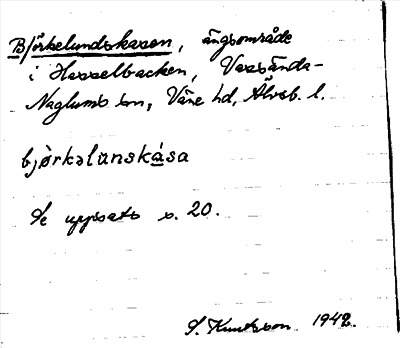 Björkelundskasen, ängsområde
i Hesselbacken, Vassända-
Naglums sn, Väne hd, Älvsb. l.
bjòrkəlunskása
Se uppsats s. 20.
S. Knutsson 1942.